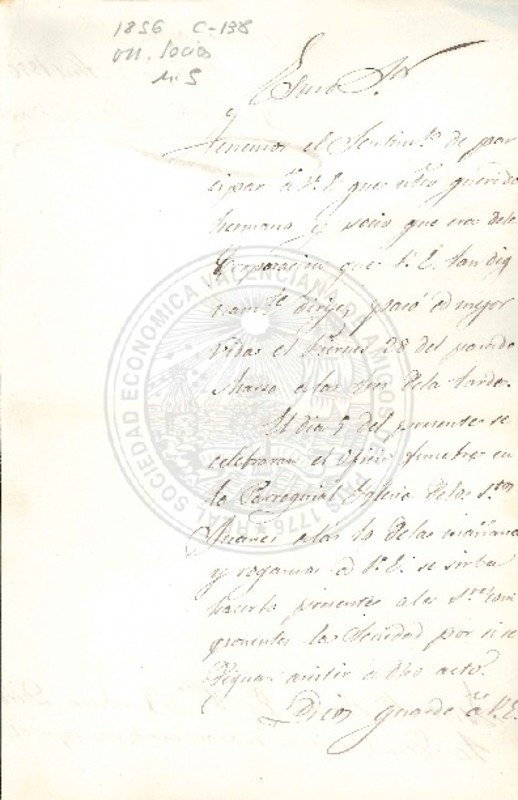 1856 C-138
VII. Socios
n. 5
Exmo Sor
Tenemos el Sentimto de par
cipar á V. E. que ntro querido
hermano y socio que era dela
Corporacion que V. E. tan dig
namte dirije, pasó á mejor
vida el Viernes 28 del pasado
Marzo alas tres dela tarde.
El dia 5 del presente se
celebraran el oficio funebre en
la Parroquial Iglesia delos Stos
Juanes alas 10 delas mañana
y rogamos á V. E. se sirba
hacerlo presente alos Sres com
ponentes la Sociedad por si se
dignan asistir a dho acto.
Dios guarde á V. E.
REAL SOCIEDAD ECONOMICA VALENCIANA DE AMIGOS DEL PAIS 1776